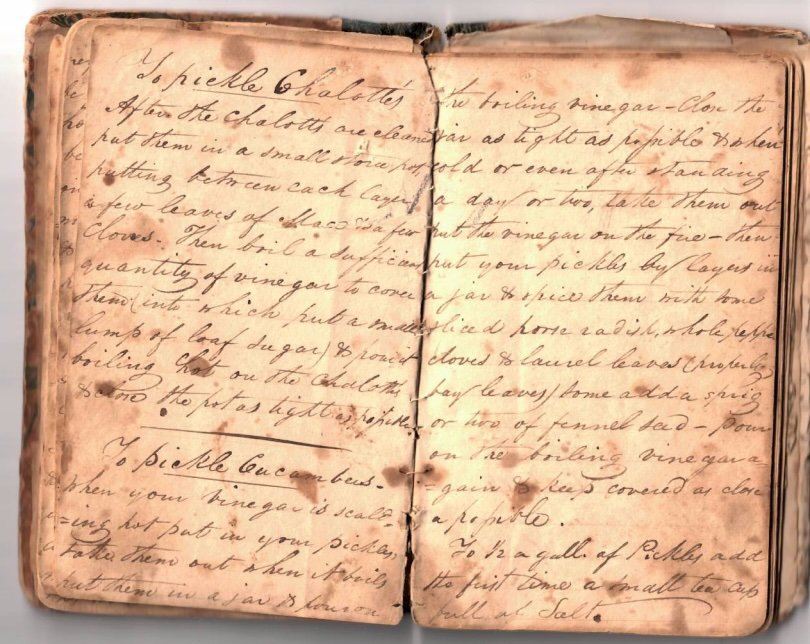 To pickle Chalotts
After the Chalotts are cleaned
put them in a small stone pot,
putting between each layer
a few leaves of Mace & a few
Cloves. Then boil a sufficient
quantity of vinegar to cover
them (into which put a small
lump of loaf sugar) & pour it
boiling hot on the Chalotts
& close the pot as tight as possible.
To pickle Cucumbers.
When your vinegar is scald-
=ing hot put in your pickles,
take them out when it boils
put them in a jar & pour on
the boiling vinegar - Close the
jar as tight as possible & when
cold or even after standing
a day or two, take them out
put the vinegar on the fire - then
put your pickles by layers in
a jar & spice them with some
sliced horse radish, whole pepper
cloves & laurel leaves (properly
bay leaves) some add a sprig
or two of fennel seed - Pour
on the boiling vinegar a-
=gain & keep covered as close
a possible.
To 1/2 a gall. of Pickles add
the first time a small tea cup
full of Salt.